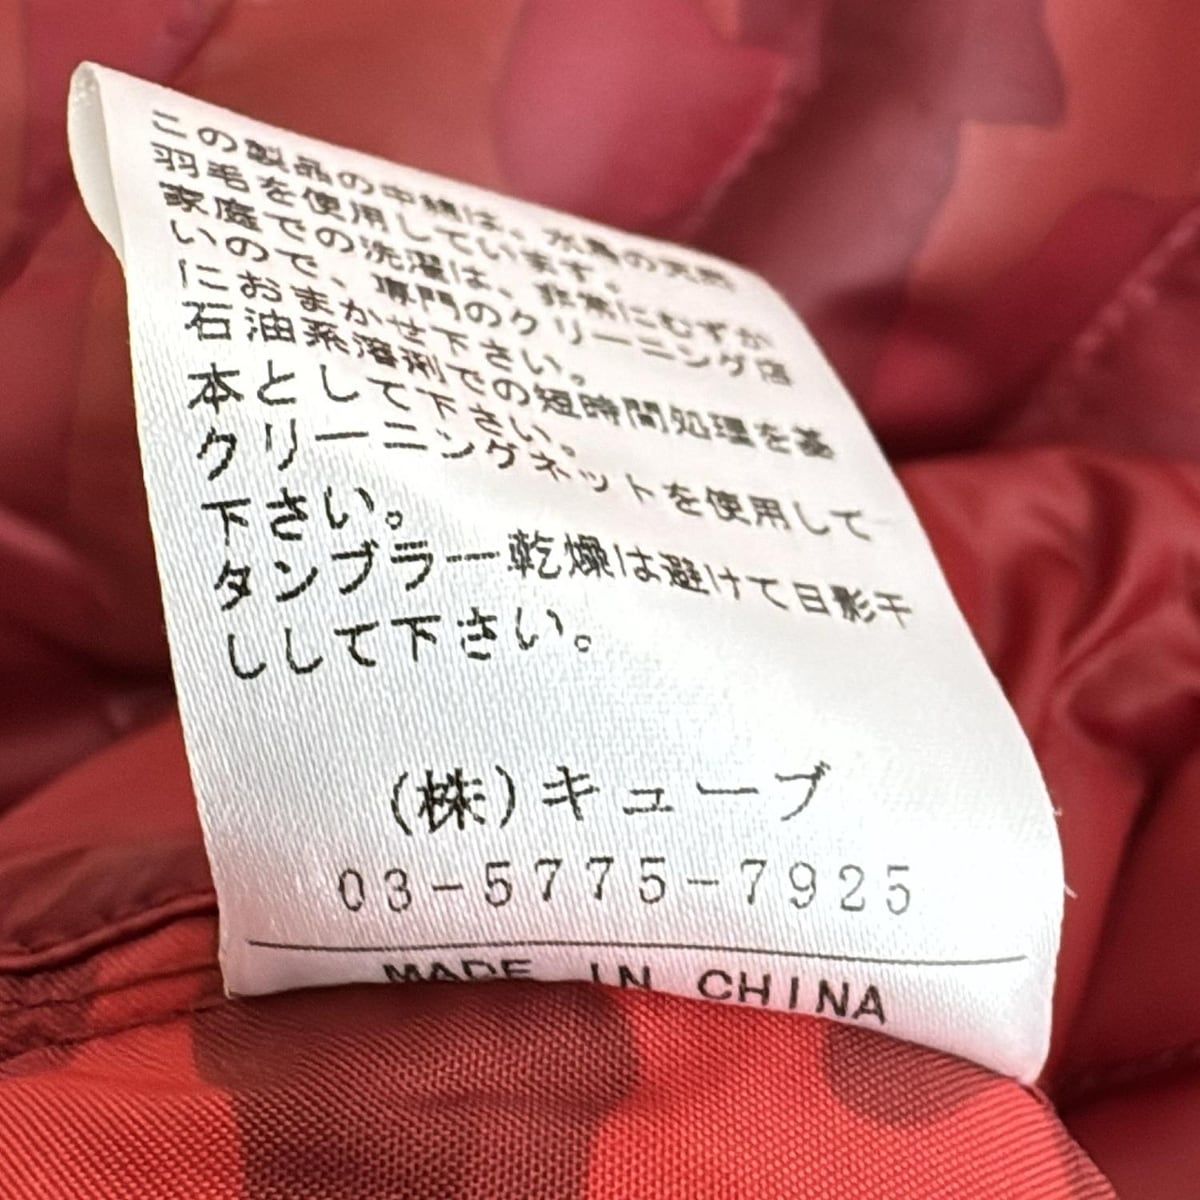 この製品の中綿は、水鳥の天然
羽毛を使用しています。
家庭での洗濯は、非常にむずか
いので、専門のクリーニング店
におまかせ下さい。
石油系溶剤での短時間処理を基
本として下さい。
クリーニングネットを使用して
下さい。
タンブラー乾燥は避けて日影干
しして下さい。
(株)キューブ
03-5775-7925
MADE IN CHINA